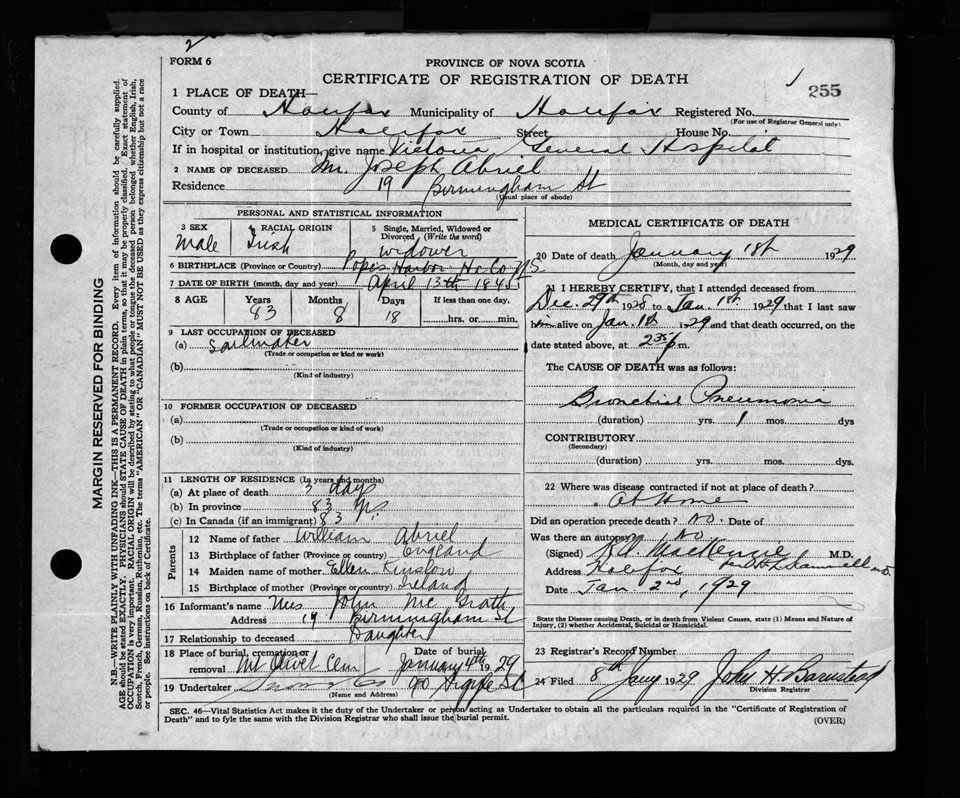 2
FORM 6
PROVINCE OF NOVA SCOTIA
CERTIFICATE OF REGISTRATION OF DEATH
1
255
1 PLACE OF DEATH—
County of Halifax Municipality of Halifax Registered No.
(For use of Registrar General only)
City or Town Halifax Street House No.
If in hospital or institution, give name Victoria General Hospital
2 NAME OF DECEASED Mr. Joseph Abriel
Residence 19 Birmingham St
(Usual place of abode)
PERSONAL AND STATISTICAL INFORMATION
3 SEX Male
4 RACIAL ORIGIN Irish
5 Single, Married, Widowed or Divorced (Write the word) Widower
6 BIRTHPLACE (Province or Country) Popes Harbor Hx. Co N.S.
7 DATE OF BIRTH (month, day and year) April 13th 1845
8 AGE Years 83 Months 8 Days 18 If less than one day. hrs. or min.
9 LAST OCCUPATION OF DECEASED
(a) Sailmaker
(Trade or occupation or kind or work)
(b)
(Kind of industry)
10 FORMER OCCUPATION OF DECEASED
(a)
(Trade or occupation or kind or work)
(b)
(Kind of industry)
11 LENGTH OF RESIDENCE (In years and months)
(a) At place of death 3 days
(b) In province 83 yrs.
(c) In Canada (if an immigrant) 83
Parents
12 Name of father William Abriel
13 Birthplace of father (Province or country) England
14 Maiden name of mother Ellen Kinslow
15 Birthplace of mother (Province or country) Ireland
16 Informant's name Mrs John Mc Grath
Address 19 Birmingham St
17 Relationship to deceased Daughter
18 Place of burial, cremation or removal Mt Olivet Cem
Date of burial January 4th 1929
19 Undertaker Snow & Co 90 Argyle St
(Name and Address)
MEDICAL CERTIFICATE OF DEATH
20 Date of death January 1st 1929
(Month, day and year)
21 I HEREBY CERTIFY, that I attended deceased from
Dec. 29th 1928 to Jan. 1st 1929 that I last saw
him alive on Jan. 1st 1929 and that death occurred, on the
date stated above, at 2 35 p.m.
The CAUSE OF DEATH was as follows:
Bronchial Pneumonia
(duration) yrs. 1 mos. dys
CONTRIBUTORY
(Secondary)
(duration) yrs. mos. dys.
22 Where was disease contracted if not at place of death?
At Home
Did an operation precede death? No. Date of
Was there an autopsy? No
(Signed) MacKenzie M.D.
Address Halifax
Date Jan. 2nd, 1929
State the Disease causing Death, or in death from Violent Causes, state (1) Means and Nature of
Injury, (2) whether Accidental, Suicidal or Homicidal.
23 Registrar's Record Number
24 Filed 8th Jany 1929 John H. Barnstead
Division Registrar
SEC. 46—Vital Statistics Act makes it the duty of the Undertaker or person acting as Undertaker to obtain all the particulars required in the "Certificate of Registration of
Death" and to fyle the same with the Division Registrar who shall issue the burial permit.
(OVER)
MARGIN RESERVED FOR BINDING
N.B.—WRITE PLAINLY WITH UNFADING INK—THIS IS A PERMANENT RECORD. Every item of information should be carefully supplied.
AGE should be stated EXACTLY. PHYSICIANS should STATE CAUSE OF DEATH in plain terms, so that it may be properly classified. Exact statement of
OCCUPATION is very important. RACIAL ORIGIN will be described by stating to what people or tongue the deceased person belonged whether English, Irish,
Scotch, French, German, Russian, Ruthenian, etc. The terms "AMERICAN" OR "CANADIAN" MUST NOT BE USED as they express citizenship but not a race
or people. See instructions on back of Certificate.